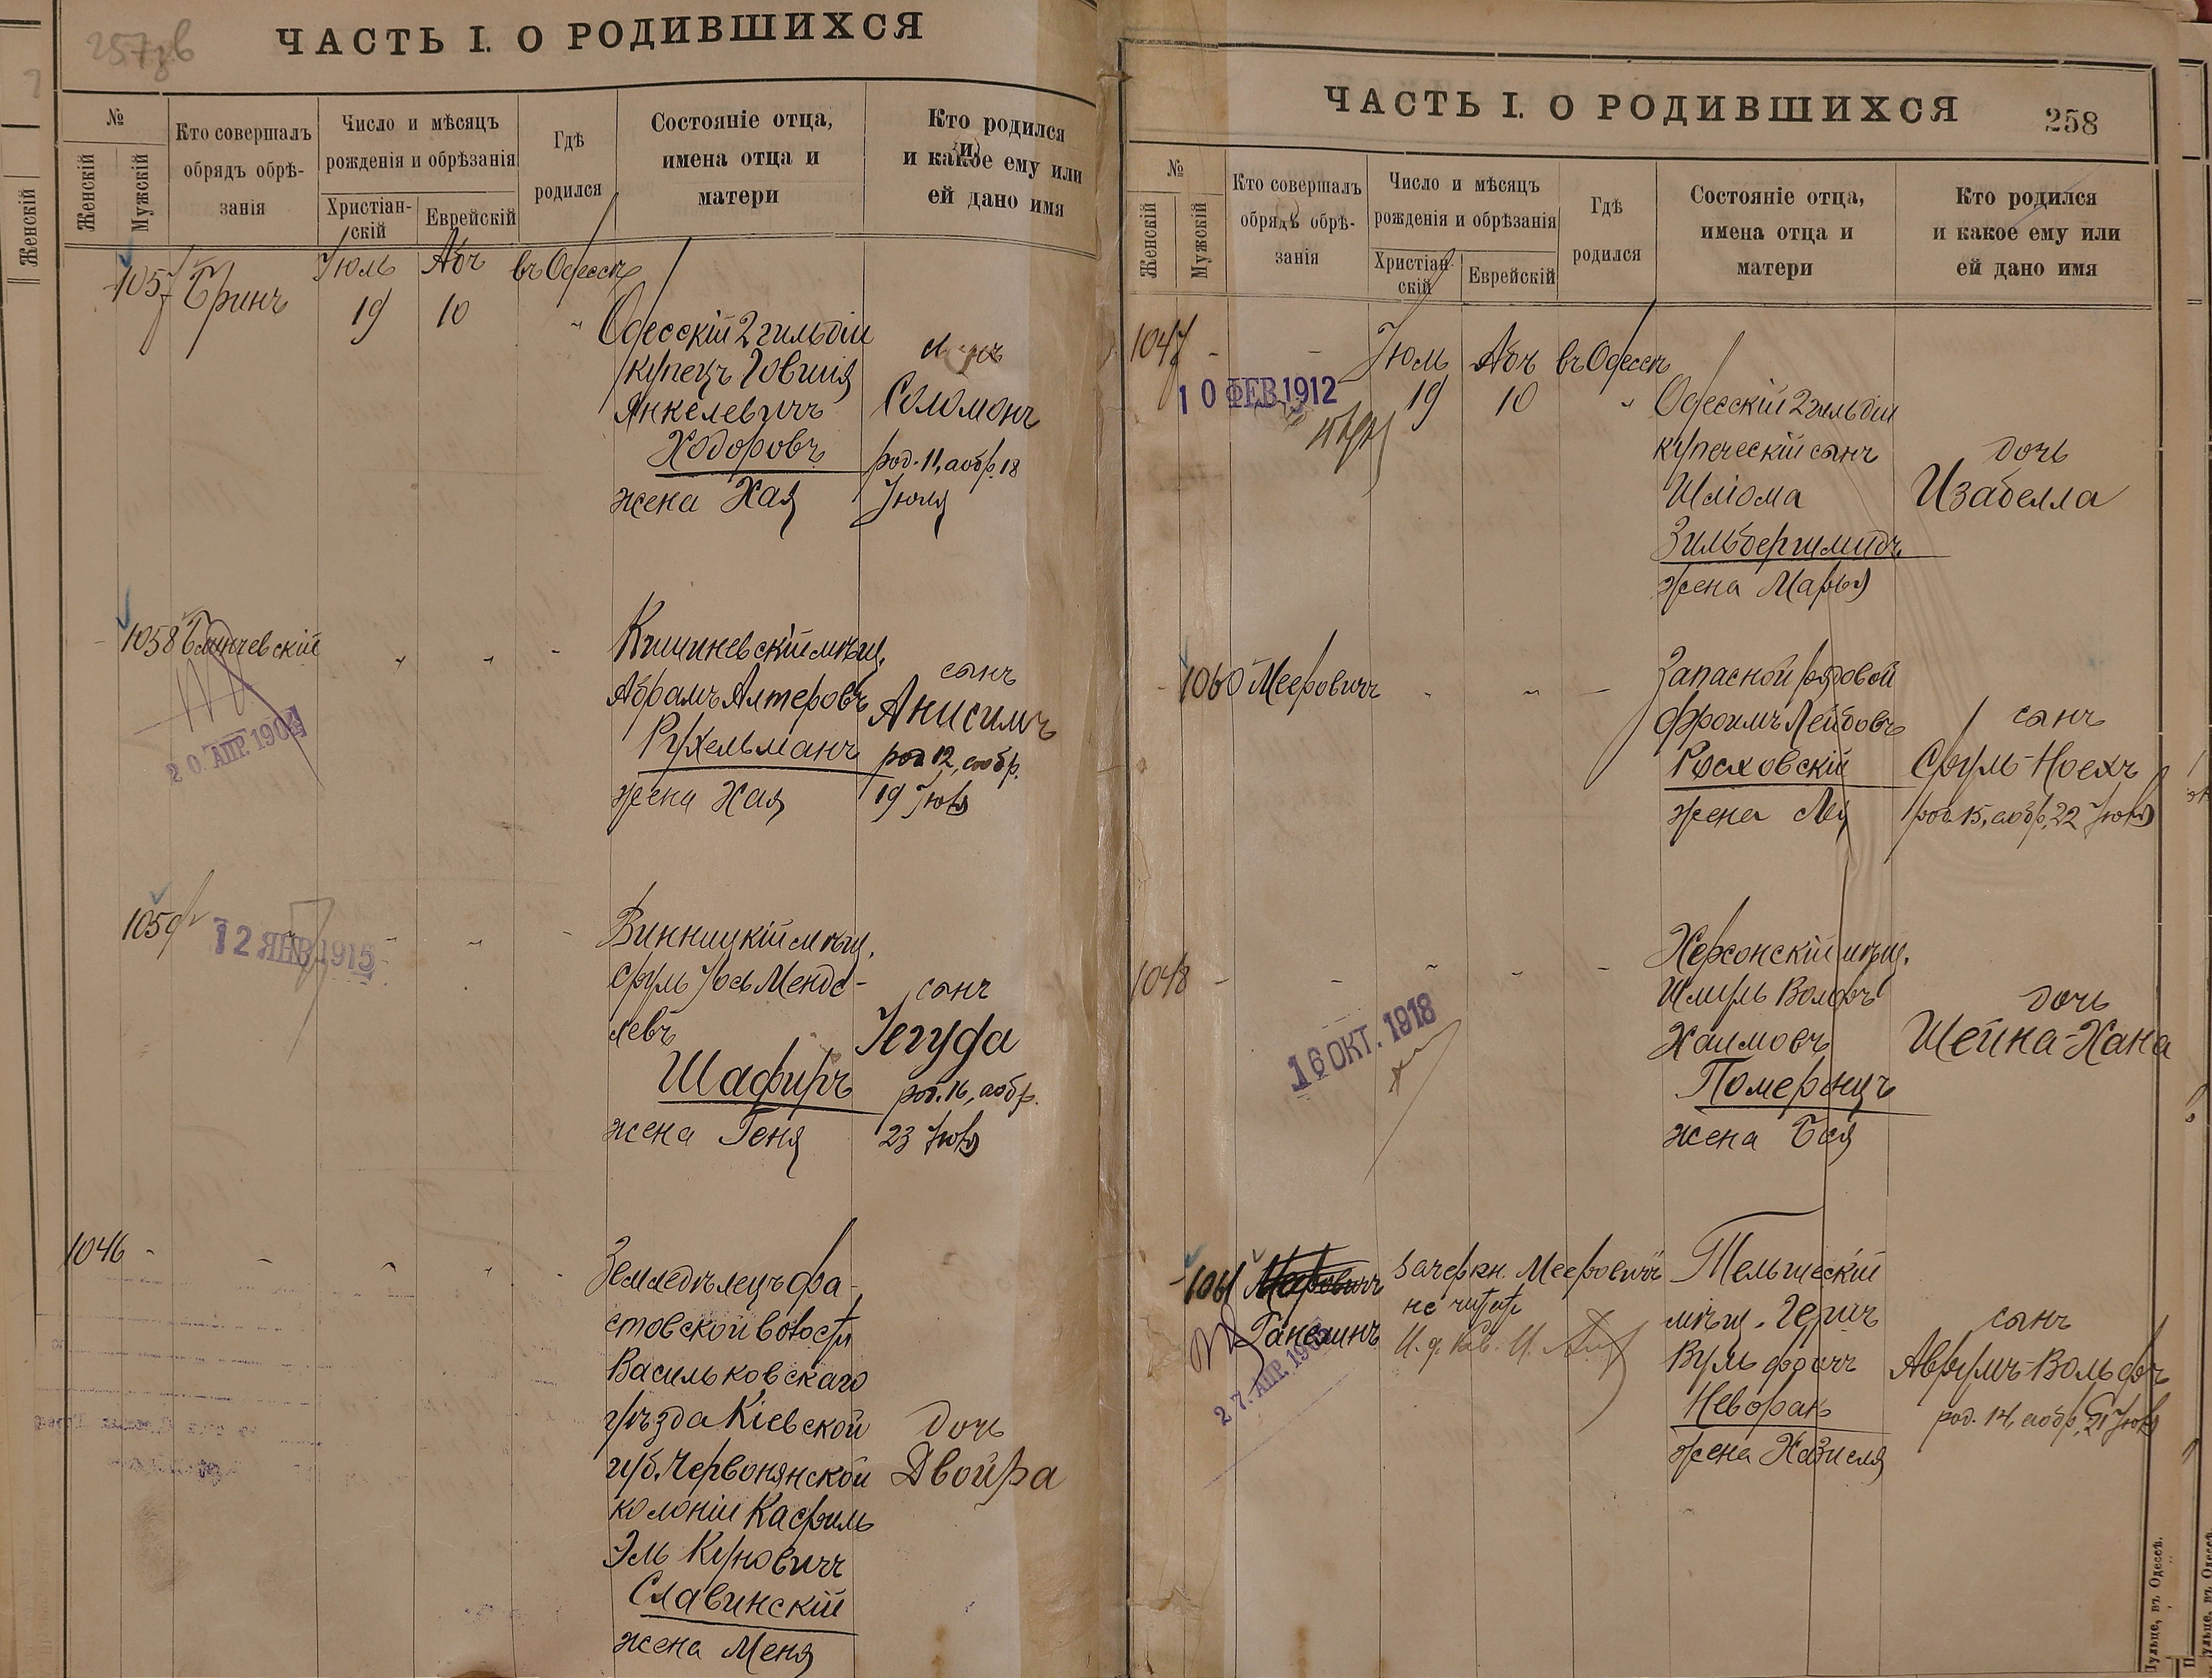 257об
ЧАСТЬ I. О РОДИВШИХСЯ
№
Женскій
Мужскій
Кто совершалъ
обрядъ обрѣ-
занія
Число и мѣсяцъ
рожденія и обрѣзанія
Христіан-
скій
Еврейскій
Гдѣ
родился
Состояніе отца,
имена отца и
матери
Кто родился
и какое ему или
ей дано имя
1057 Бринъ
Іюль Абъ въ Одессѣ
19 10 "
Одесскій 2 гильдіи
купецъ Іовшія
Янкелевичъ
Ходоровъ
жена Хая
сынъ
Соломонъ
род. 11, а обр. 18
Іюля
1058
20. АПР. 1904
Кишиневскій мѣщ.
Абрамъ Алтеровъ
Рухельманъ
жена Хая
сынъ
Анисимъ
род 12, а обр.
19 Іюля
1059
12 ЯНВ 1915
Винницкій мѣщ.
Сруль Іось Менде-
левъ
Шафиръ
жена Геня
сынъ
Іегуда
род. 16, а обр.
23 Іюля
1046 -
Земледѣлецъ Фа-
стовской волости
Васильковскаго
уѣзда Кіевской
губ. Червонянской
колоніи Касриль
Эль Куновичъ
Славинскій
жена Меня
дочь
Двойра
ЧАСТЬ I. О РОДИВШИХСЯ
258
№
Женскій
Мужскій
Кто совершалъ
обрядъ обрѣ-
занія
Число и мѣсяцъ
рожденія и обрѣзанія
Христіан-
скій
Еврейскій
Гдѣ
родился
Состояніе отца,
имена отца и
матери
Кто родился
и какое ему или
ей дано имя
1047 -
10 ФЕВ 1912
Іюль Абъ въ Одессѣ
19 10 "
Одесскій 2 гильдіи
купеческій сынъ
Шлiома
Зильбершмидъ
жена Марья
дочь
Изабелла
1060 Мееровичъ
Запасной рядовой
Фроимъ Лейбовъ
Росховскій
жена Лея
сынъ
Сруль-Ноехъ
род 15, а обр. 22 Іюля
1048 -
16 ОКТ. 1918
Херсонскій мѣщ.
Шмуль Вольфъ
Хаимовъ
Померанцъ
жена Бася
дочь
Шейна-Хана
1061 Мееровичъ
Ганелинъ
27. АПР.
зачеркн. Мееровичъ
не читать
Тельшескій
мѣщ. Гершъ
Вульфовичъ
Неворан
жена
сынъ
Аврумъ-Вольфъ
род. 14, а обр. 21 Іюля
Женскій
Тульце, въ Одессѣ.